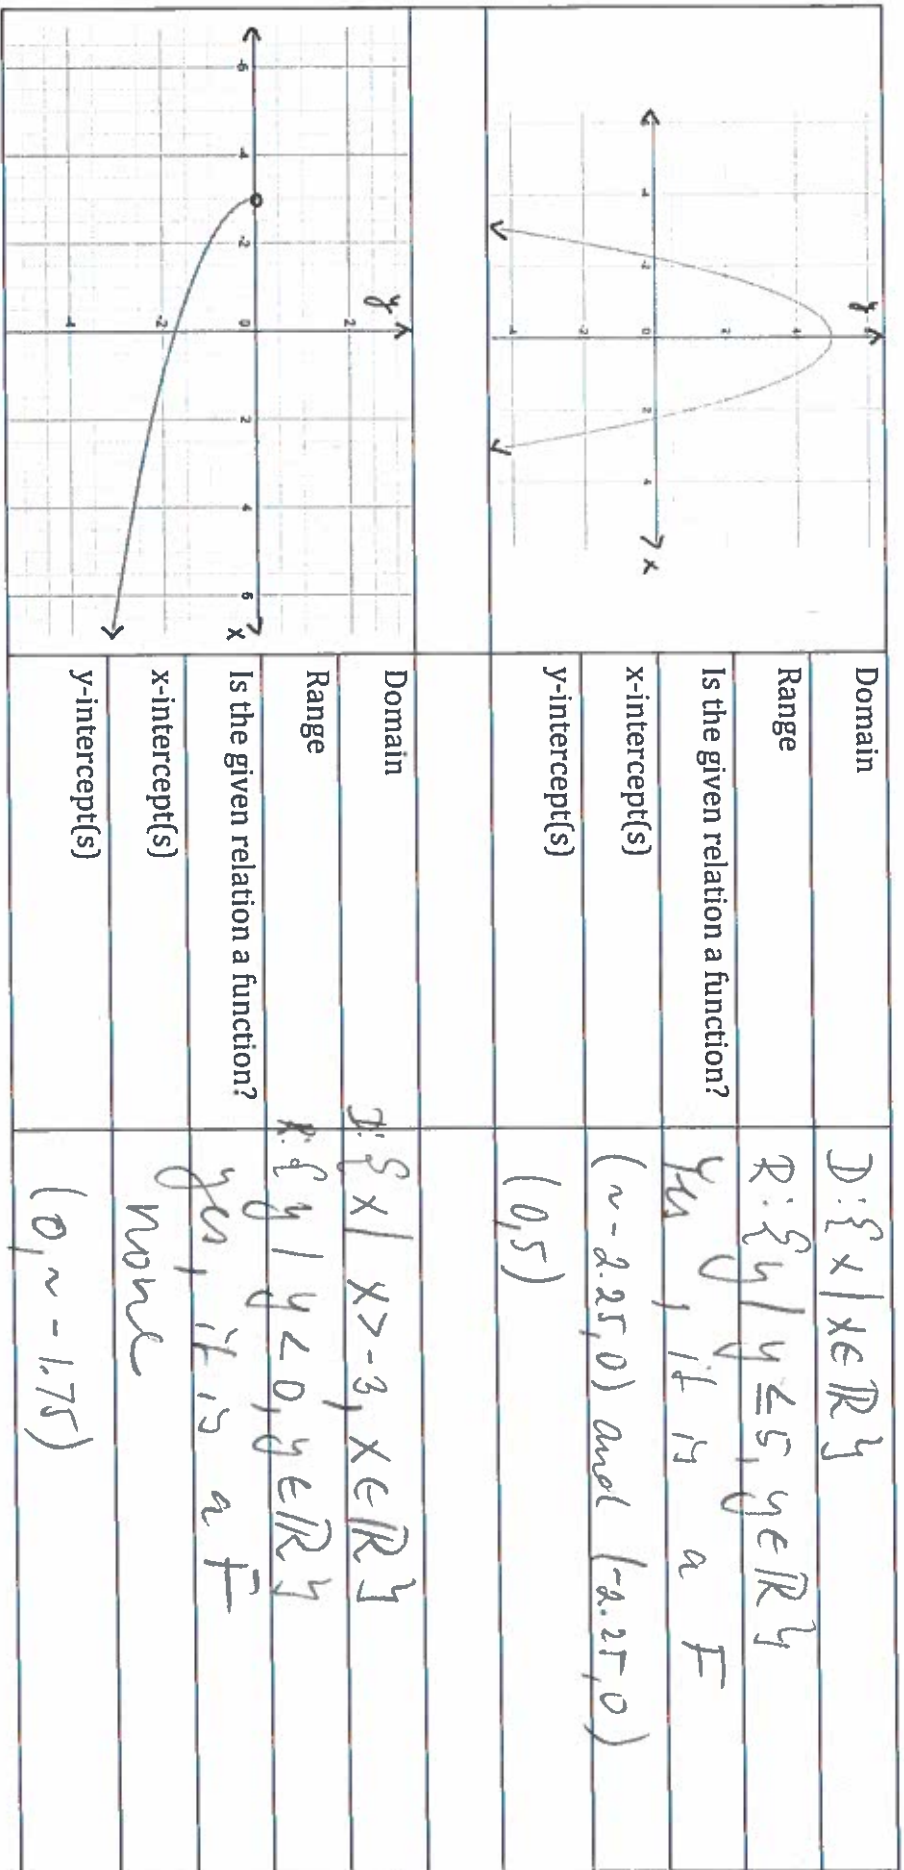 y
6
4
2
0
-2
-4
6
-4
-2
2
4
x
Domain
D:{x|x∈ℝ}
Range
R:{y|y≤5, y∈ℝ}
Is the given relation a function?
Yes, it is a F
x-intercept(s)
(~-2.25,0) and (~2.25,0)
y-intercept(s)
(0,5)
y
2
-6
-4
-2
0
2
4
6
x
-2
-4
Domain
D:{x| x>-3, x∈ℝ}
Range
R:{y|y<0, y∈ℝ}
Is the given relation a function?
yes, it is a F
x-intercept(s)
none
y-intercept(s)
(0,~-1.75)